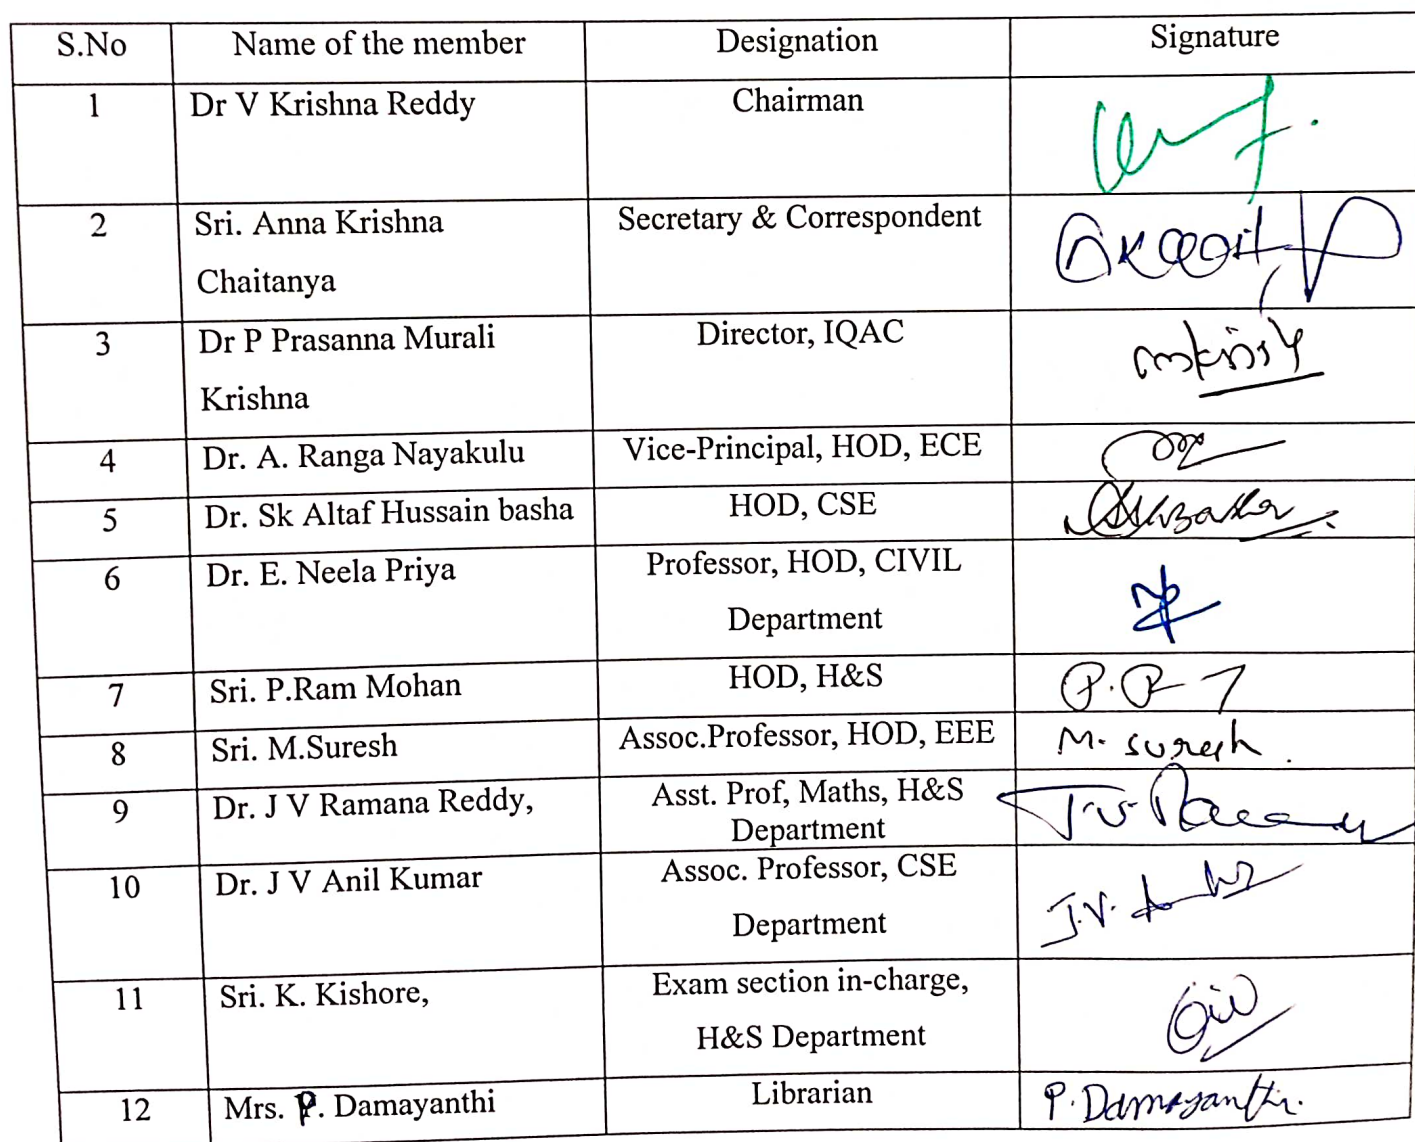 S.No Name of the member Designation Signature
1 Dr V Krishna Reddy Chairman
2 Sri. Anna Krishna Secretary & Correspondent
Chaitanya
3 Dr P Prasanna Murali Director, IQAC
Krishna
4 Dr. A. Ranga Nayakulu Vice-Principal, HOD, ECE
5 Dr. Sk Altaf Hussain basha HOD, CSE
6 Dr. E. Neela Priya Professor, HOD, CIVIL
Department
7 Sri. P.Ram Mohan HOD, H&S
8 Sri. M.Suresh Assoc.Professor, HOD, EEE M. Suresh.
9 Dr. J V Ramana Reddy, Asst. Prof, Maths, H&S
Department
10 Dr. J V Anil Kumar Assoc. Professor, CSE J.V.
Department
11 Sri. K. Kishore, Exam section in-charge,
H&S Department
12 Mrs. P. Damayanthi Librarian P. Damayanthi.